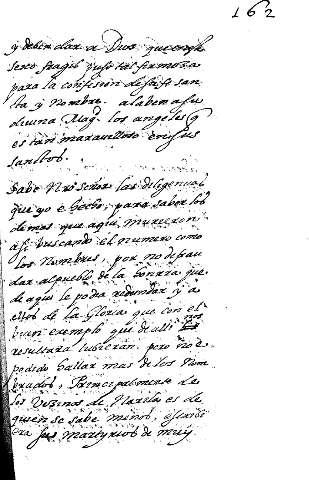 162
y deben dar a Dios que en gl
sexo fragil puso tal firmeza
para la confesion de su so san
ta y nombre. alaben a su
divina Mag. los angeles q
es tan maravilloso en sus
sanctos.
Sabe Nro Señor las diligencias
que yo e hecho, para saber los
demas que aqui murieron
asi buscando el numero como
los nombres, por no defrau
dar al pueblo de la honrra que
de aqui le podia redundar y a
ellos de la Gloria que con el
buen exemplo que de alli nos
resultara tubieran. pero no e
podido hallar mas de los nom
brados, Principalmente de
los Vezinos de Narila es de
quien se sabe menos, aserio
era sus martyrios de muy